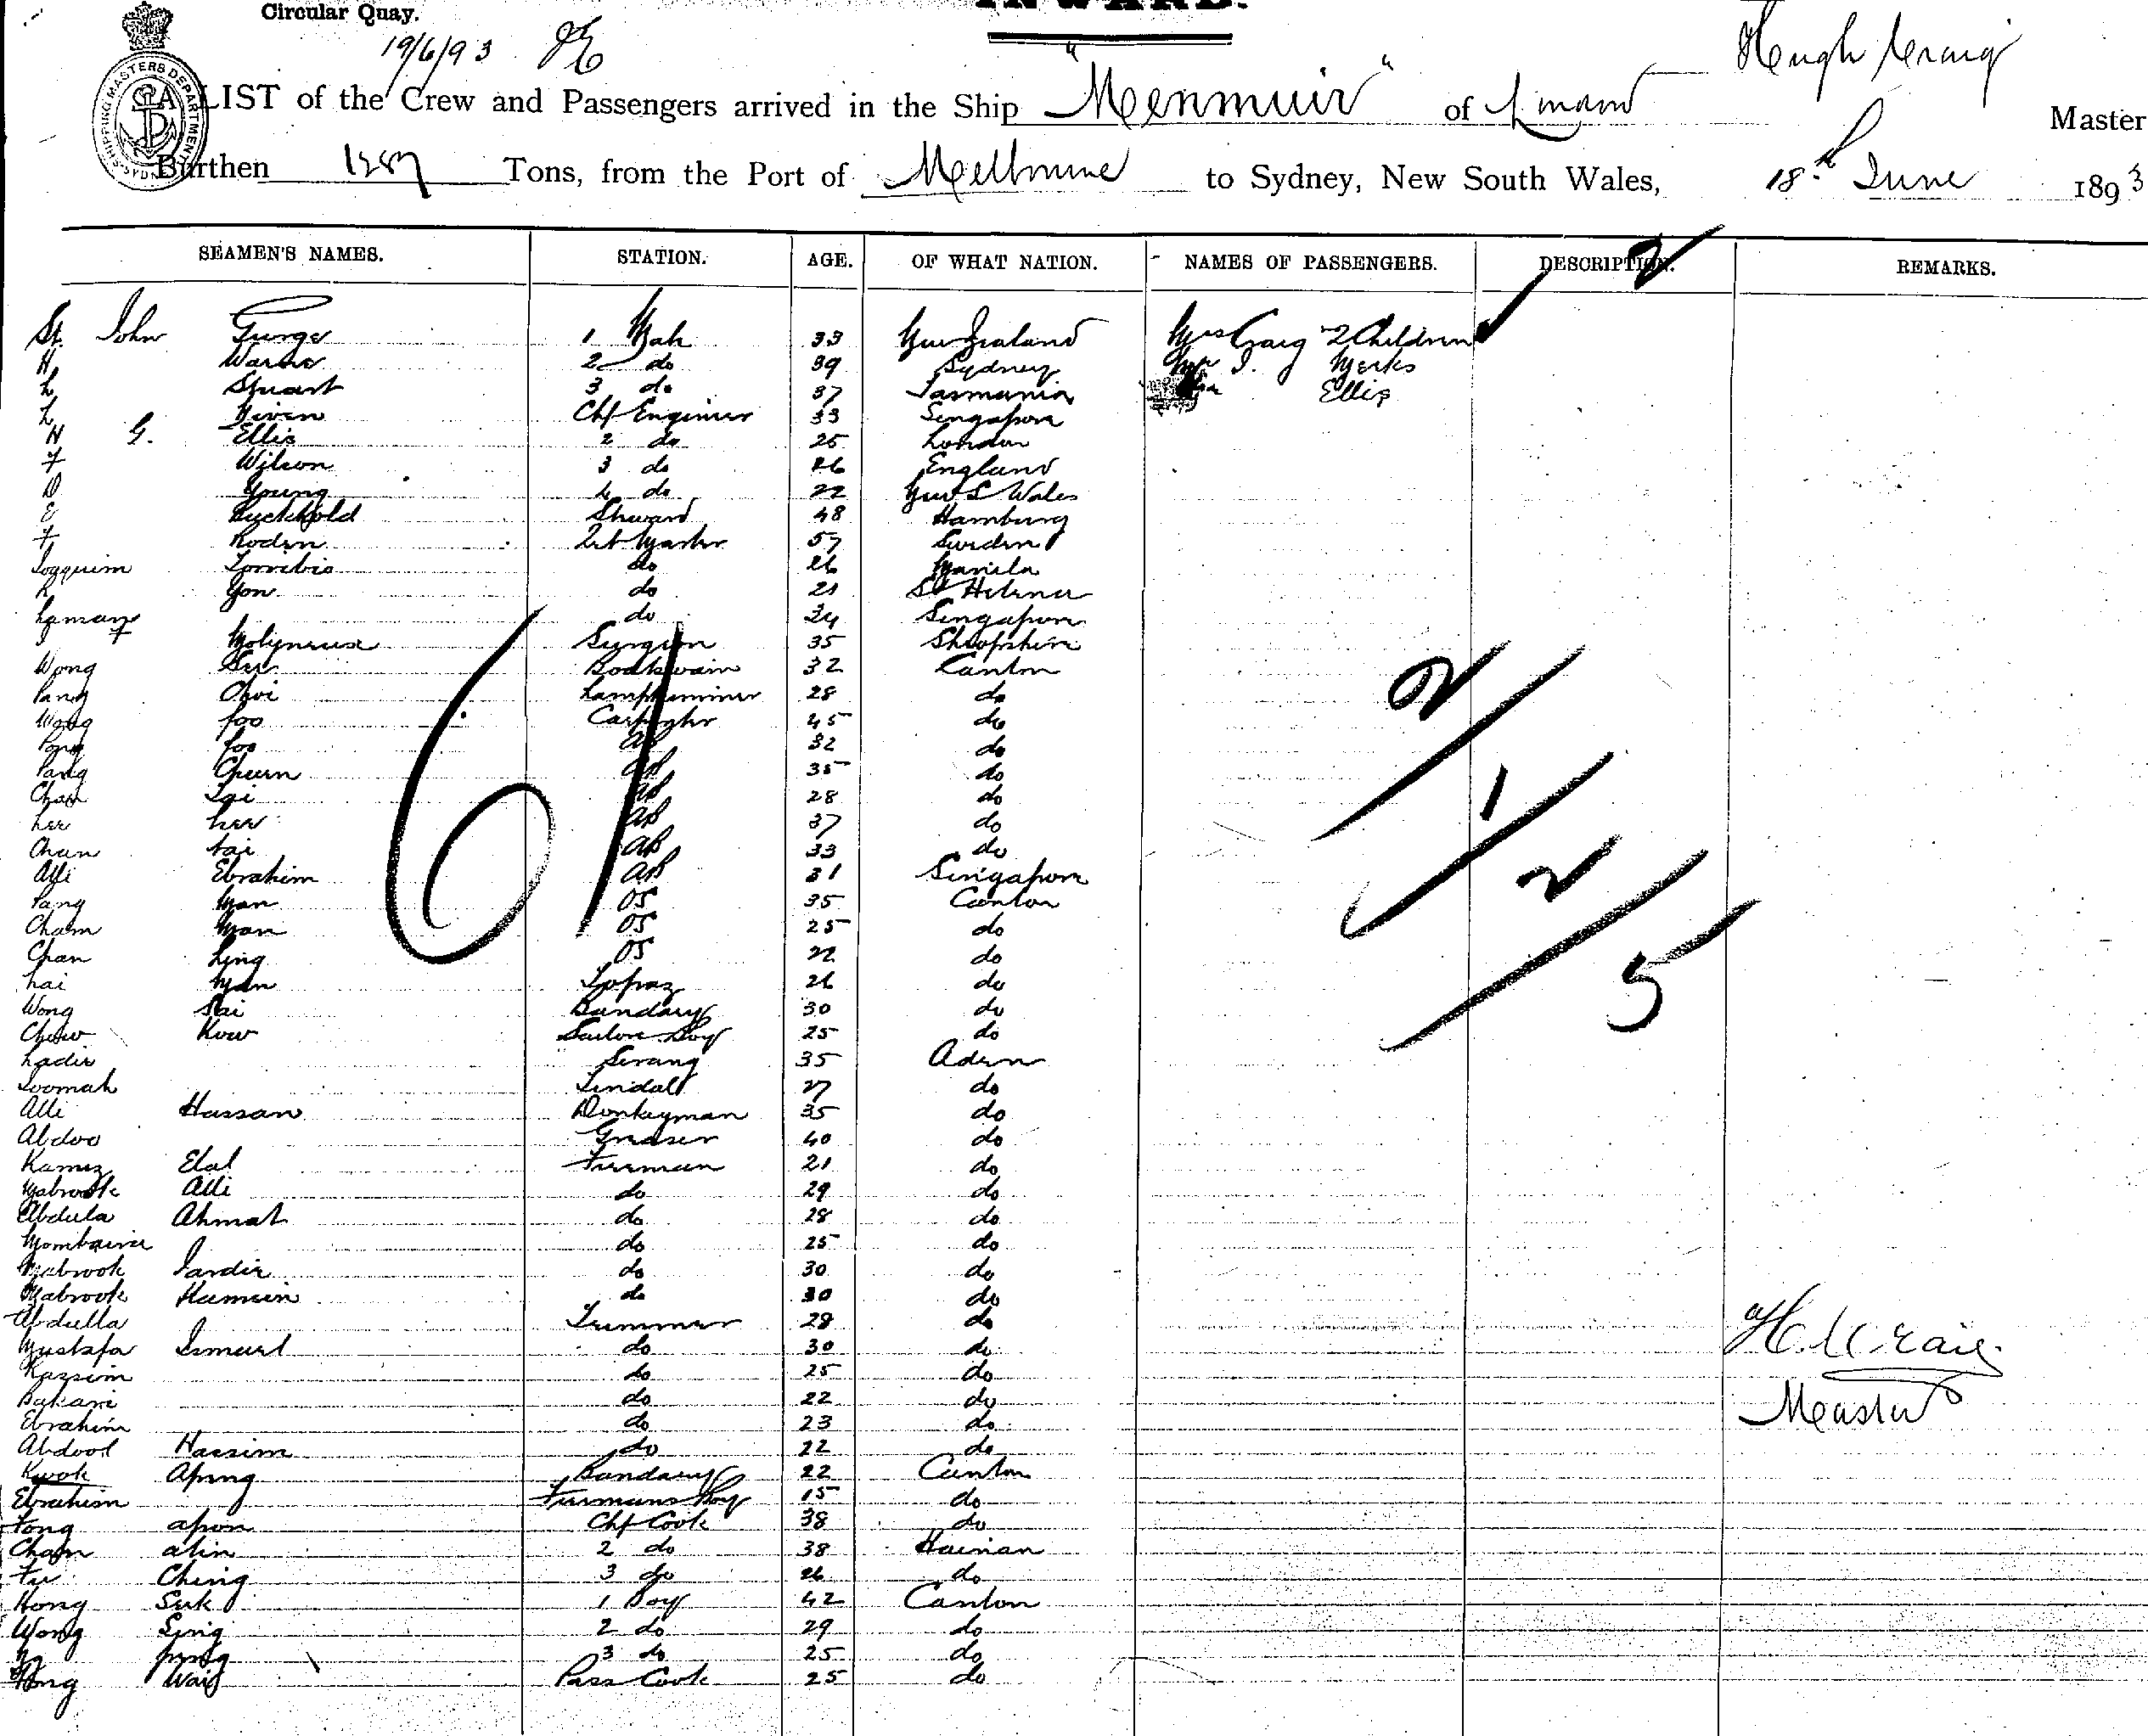 Circular Quay.
INWARD.
19/6/93
Hugh Craig
SHIPPING MASTERS DEPARTMENT SYDNEY
A LIST of the Crew and Passengers arrived in the Ship "Menmuir" of Master
Burthen 1287 Tons, from the Port of Melbourne to Sydney, New South Wales, 18th June 1893
SEAMEN'S NAMES. STATION. AGE. OF WHAT NATION. NAMES OF PASSENGERS. DESCRIPTION. REMARKS.
St. John George 1 Mate 33 New Zealand Mrs Craig 2 Children 2
H Warner 2 do 39 Sydney Mr J. Merks
L Stuart 3 do 37 Tasmania Ellis
L Niven Chf Engineer 33 Singapore
H G. Ellis 2 do 25 London
F Wilson 3 do 26 England
D Young 4 do 22 New S Wales
E Steward 48 Hamburg
F Roden Qrt Master 57 Sweden
Joqquim Torribio do 26 Manila
L Yon do 21 St Helena
do 24 Singapore
J F Molyneux Surgeon 35 Shropshire
Wong See Boatswain 32 Canton
Pang Choi Lamptrimmer 28 do
Wong foo Carpenter 45 do
Pong foo AB 32 do
Pang Chuen AB 35 do
Chan Loi AB 28 do
Lee hee AB 37 do
Chan tai AB 33 do
Alli Ebrahim AB 31 Singapore
Pang Man OS 35 Canton
Cham Man OS 25 do
Chan Ling OS 22 do
Lai Man Topaz 26 do
Wong Sai Bandary 30 do
Chew Kow Sailors Boy 25 do
Ladir Serang 35 Aden
Soomah Tindall 27 do
Alli Hassan Donkeyman 35 do
Abdoo Greaser 40 do
Kamiz Elal Fireman 21 do
Mabrook Alli do 29 do
Abdula Ahmat do 28 do
do 25 do
Mabrook Sardir do 30 do
Mabrook Hamein do 30 do
Abdulla Trimmer 28 do
Mustafa Ismael do 30 do
Kazsim do 25 do
Bakari do 22 do
Ebrahim do 23 do
Abdool Hassim do 22 do
Kwok Apong Bandary 22 Canton
Ebrahim Firmans Boy 15 do
Fong apon Chf Cook 38 do
Cham alin 2 do 38 Hainan
Fu Ching 3 do 26 do
Hong Suk 1 Boy 42 Canton
Wong Sing 2 do 29 do
3 do 25 do
Wong Wai Pass Cook 25 do
61
2/1/2/5
H. Craig.
Master